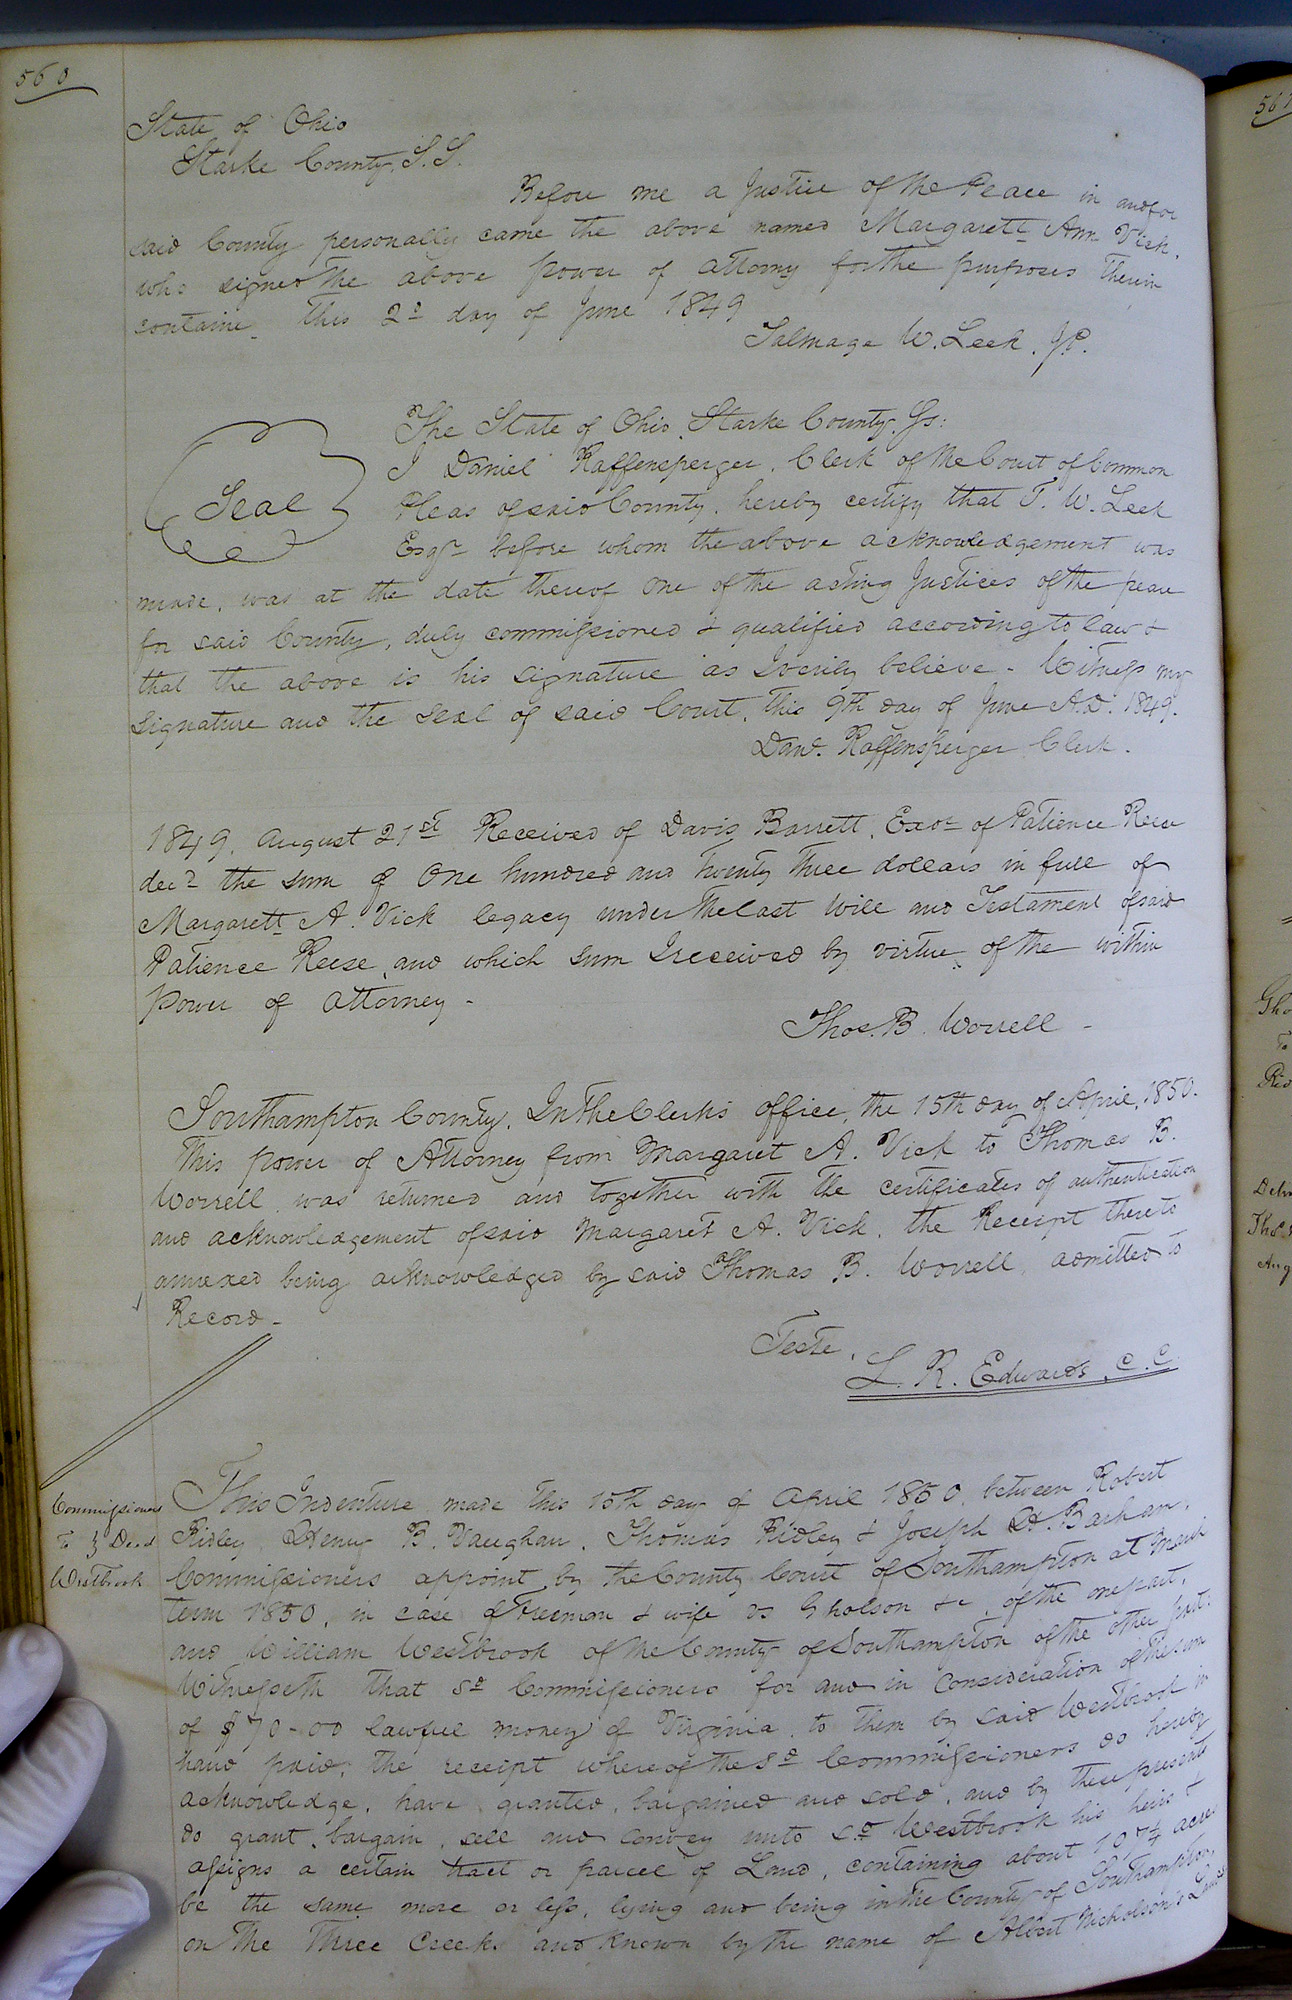 560
State of Ohio
Starke County, S.S.
Before me a Justice of the Peace in and for
said County personally came the above named Margarett Ann Vick.
who signed the above power of attorny for the purposes therein
containe. this 2d day of June 1849
Talmage W. Leek. J.P.
The State of Ohio, Starke County, Ss:
I Daniel Raffensperger, Clerk of the Court of Common
Seal
Pleas of said County, hereby certify that T. W. Leek
Esqr before whom the above acknowledgement was
made, was at the date thereof One of the acting Justices of the peace
for said County, duly commissioned & qualified according to law &
that the above is his signature as I verily believe. Witness my
signature and the seal of said Court, this 9th day of June A.D. 1849.
Danl. Raffensperger Clerk.
1849. August 21st Received of Davis Barrett, Exor of Patience Reese
decd the sum of One hundred and twenty three dollars in full of
Margarett A. Vick legacy under the last Will and Testament of said
Patience Reese, and which sum I received by virtue of the within
Power of attorney -
Thos. B. Worrell -
Southampton County. In the Clerk's office, the 15th day of April, 1850.
This power of Attorney from Margaret A. Vick to Thomas B.
Worrell was returned and together with the certificates of authentication
and acknowledgement of said Margaret A. Vick, the Receipt thereto
annexed being acknowledged by said Thomas B. Worrell, admitted to
Record -
Teste,
L. R. Edwards, C.C.
Commissioners
To } Deed
Westbrook
This Indenture made this 15th day of April 1850, between Robert
Ridley, Henry B. Vaughan, Thomas Ridley & Joseph H. Barham,
Commissioners appoint by the County Court of Southampton at March
term 1850, in case of Freeman & wife vs Gholson &c, of the one part,
and William Westbrook of the County of Southampton of the other part.
Witnesseth that sd Commissioners for and in Consideration of the sum
of $70-00 lawful money of Virginia, to them by said Westbrook in
hand paid, the receipt whereof the sd Commissioners do hereby
acknowledge, have granted, bargained and sold, and by these presents
do grant, bargain, sell and convey unto sd Westbrook his heirs &
assigns a certain tract or parcel of Land, containing about 107¼ acres
be the same more or less, lying and being in the County of Southampton,
on the Three Creeks and known by the name of Albert Nicholson's Land
561